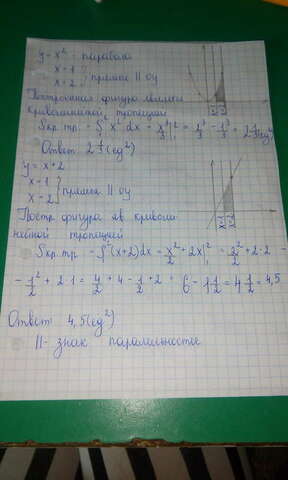 y = x² ; парабола
x = 1
x = 2 } прямые || oy
Построенная фигура является
криволинейной трапецией
Sкр.тр. = ∫₁² x² dx = x³/3 |₁² = 2³/3 - 1³/3 = 2 1/3 (ед²)
Ответ 2 1/3 (ед²)
y = x + 2
x = 1
x = 2 } прямая || oy
Постр фигура яв криволи-
нейной трапецией
Sкр.тр. = ∫₁² (x+2) dx = x²/2 + 2x |₁² = 2²/2 + 2·2 -
- 1²/2 + 2·1 = 4/2 + 4 - 1/2 + 2 = 6 - 1 1/2 = 4 1/2 = 4,5
Ответ 4,5 (ед²)
|| - знак паралельностье
x=1 x=2
x=1 x=2